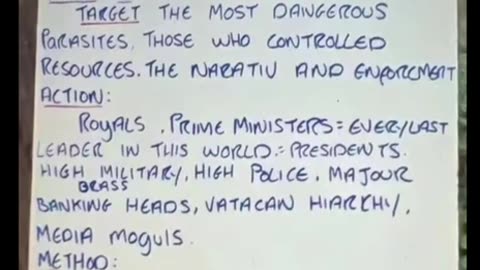 TARGET THE MOST DANGEROUS
PARASITES, THOSE WHO CONTROLLED
RESOURCES. THE NARATIV AND ENFORCMENT
ACTION:
ROYALS, PRIME MINISTERS = EVERY LAST
LEADER IN THIS WORLD. = PRESIDENTS.
HIGH MILITARY, HIGH POLICE, MAJOUR
BRASS
BANKING HEADS, VATACAN HIARCHY,
MEDIA MOGULS.
METHOD: